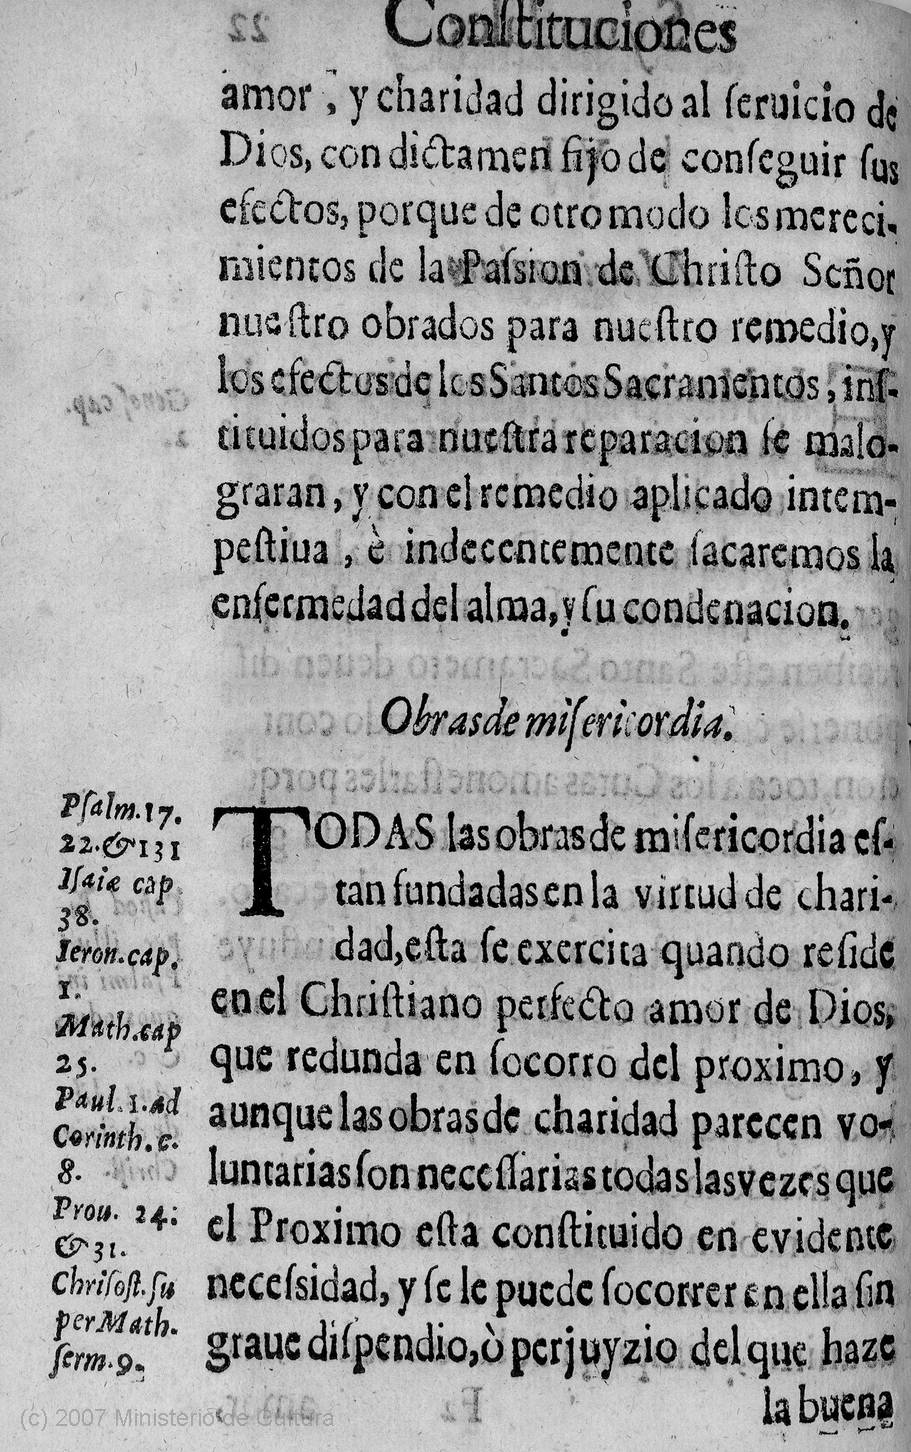 Conſtituciones
amor, y charidad dirigido al ſeruicio de
Dios, con dictamen fijo de conſeguir ſus
efectos, porque de otro modo los mereci-
mientos de la Paſsion de Chriſto Señor
nueſtro obrados para nueſtro remedio, y
los efectos de los Santos Sacramentos, inſ-
tituidos para nueſtra reparacion ſe malo-
graran, y con el remedio aplicado intem-
peſtiua, è indecentemente ſacaremos la
enfermedad del alma, y ſu condenacion.
Obras de miſericordia.
TODAS las obras de miſericordia eſ-
tan fundadas en la virtud de chari-
dad, eſta ſe exercita quando reſide
en el Chriſtiano perfecto amor de Dios,
que redunda en ſocorro del proximo, y
aunque las obras de charidad parecen vo-
luntarias ſon neceſſarias todas las vezes que
el Proximo eſta conſtituido en evidente
neceſsidad, y ſe le puede ſocorrer en ella ſin
graue diſpendio, ò perjuyzio del que haze
la buena
Pſalm. 17.
22. & 131
Iſaiæ cap
38.
Ieron. cap.
1.
Math. cap
25.
Paul. 1. ad
Corinth. c.
8.
Prou. 24:
& 31.
Chriſoſt. ſu
per Math.
ſerm. 9.
(c) 2007 Ministerio de Cultura